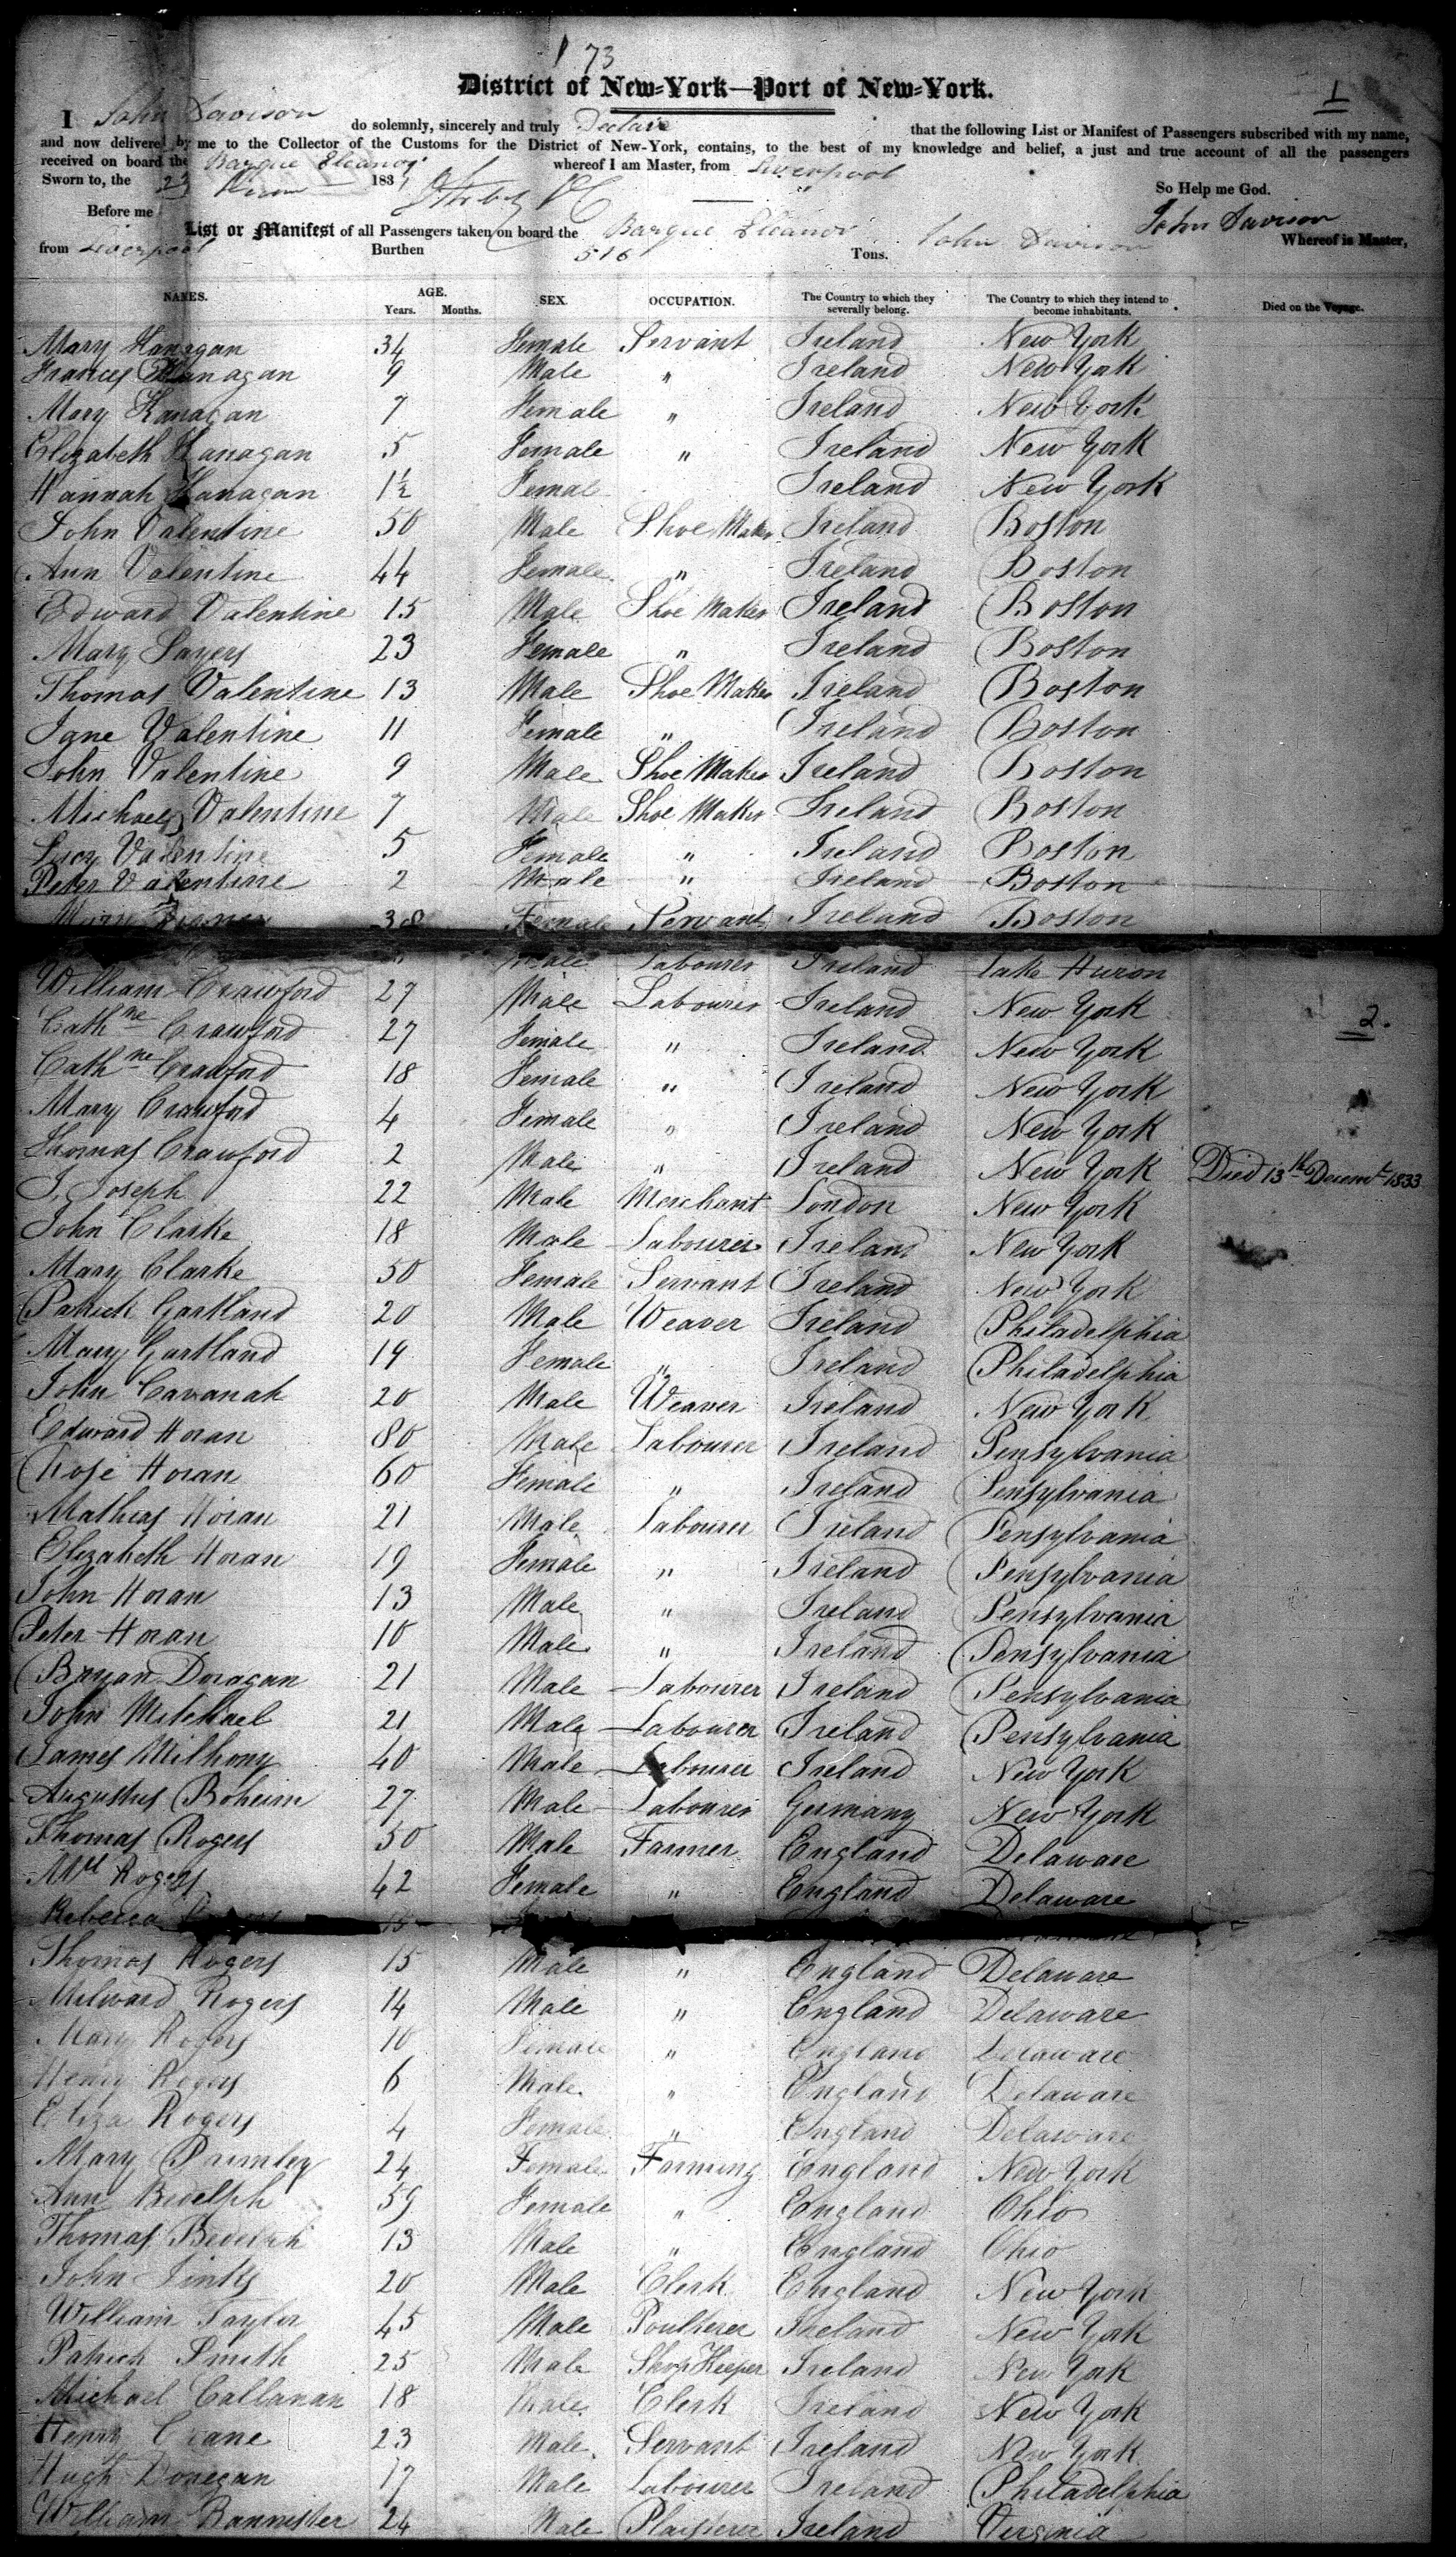 173
District of New-York—Port of New-York.
1
I John Davison do solemnly, sincerely and truly Declare that the following List or Manifest of Passengers subscribed with my name,
and now delivered by me to the Collector of the Customs for the District of New-York, contains, to the best of my knowledge and belief, a just and true account of all the passengers
received on board the Barque Eleanor whereof I am Master, from Liverpool
Sworn to, the 23 183
So Help me God.
Before me John Davison
List or Manifest of all Passengers taken on board the Barque Eleanor John Davison Whereof is Master,
from Liverpool Burthen 516 Tons.
NAMES. AGE. Years. Months. SEX. OCCUPATION. The Country to which they severally belong. The Country to which they intend to become inhabitants. Died on the Voyage.
Mary Hanagan 34 Female Servant Ireland New York
Frances Hanagan 9 Male " Ireland New York
Mary Hanagan 7 Female " Ireland New York
Elizabeth Hanagan 5 Female " Ireland New York
Hannah Hanagan 1½ Female Ireland New York
John Valentine 50 Male Shoe Maker Ireland Boston
Ann Valentine 44 Female " Ireland Boston
Edward Valentine 15 Male Shoe Maker Ireland Boston
Mary Sayers 23 Female " Ireland Boston
Thomas Valentine 13 Male Shoe Maker Ireland Boston
Jane Valentine 11 Female " Ireland Boston
John Valentine 9 Male Shoe Maker Ireland Boston
Michael Valentine 7 Male Shoe Maker Ireland Boston
Lucy Valentine 5 Female " Ireland Boston
Peter Valentine 2 Male " Ireland Boston
Mary 38 Female Servant Ireland Boston
Male Labourer Ireland Lake Huron
William Crawford 27 Male Labourer Ireland New York
2.
Cathne Crawford 27 Female " Ireland New York
Cathne Crawford 18 Female " Ireland New York
Mary Crawford 4 Female " Ireland New York
Thomas Crawford 2 Male " Ireland New York Died 13th Decemr 1833
J. Joseph 22 Male Merchant London New York
John Clarke 18 Male Labourer Ireland New York
Mary Clarke 50 Female Servant Ireland New York
Patrick Gartland 20 Male Weaver Ireland Philadelphia
Mary Gartland 19 Female " Ireland Philadelphia
John Cavanah 20 Male Weaver Ireland New York
Edward Horan 80 Male Labourer Ireland Pensylvania
Rose Horan 60 Female " Ireland Pensylvania
Mathias Horan 21 Male Labourer Ireland Pensylvania
Elizabeth Horan 19 Female " Ireland Pensylvania
John Horan 13 Male " Ireland Pensylvania
Peter Horan 10 Male " Ireland Pensylvania
Bryan Doragan 21 Male Labourer Ireland Pensylvania
John Mitchael 21 Male Labourer Ireland Pensylvania
James Milhony 40 Male Labourer Ireland New York
Augustus Boheim 27 Male Labourer Germany New York
Thomas Rogers 50 Male Farmer England Delaware
Mrs Rogers 42 Female " England Delaware
Rebecca
Thomas Rogers 15 Male " England Delaware
Milward Rogers 14 Male " England Delaware
Mary Rogers 10 Female " England Delaware
Henry Rogers 6 Male " England Delaware
Eliza Rogers 4 Female " England Delaware
Mary Brumley 24 Female Farming England New York
Ann Bidelph 59 Female " England Ohio
Thomas Bidelph 13 Male " England Ohio
John Jinks 20 Male Clerk England New York
William Taylor 45 Male Poulterer Ireland New York
Patrick Smith 25 Male Shop Keeper Ireland New York
Michael Callanan 18 Male Clerk Ireland New York
Henry Crane 23 Male Servant Ireland New York
Hugh Donegan 17 Male Labourer Ireland Philadelphia
William Bannister 24 Male Plaisterer Ireland Virginia